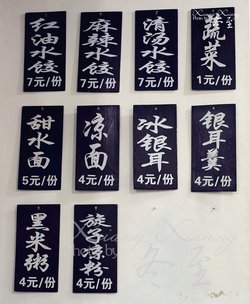 红油水饺
7元/份
麻辣水饺
7元/份
清汤水饺
7元/份
蔬菜
1元/份
甜水面
5元/份
凉面
4元/份
冰银耳
4元/份
银耳羹
4元/份
黑米粥
4元/份
旋子凉粉
4元/份